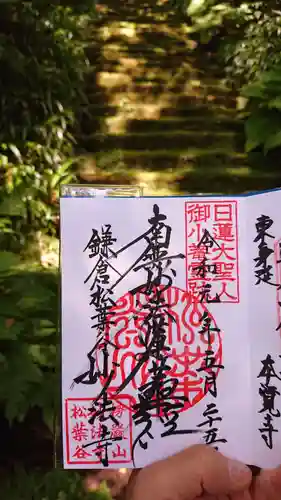 東身延
本覚寺
日蓮大聖人
御小菴霊跡
令和元年五月二十五
南無妙法蓮華経
鎌倉松葉
妙法寺
松葉谷